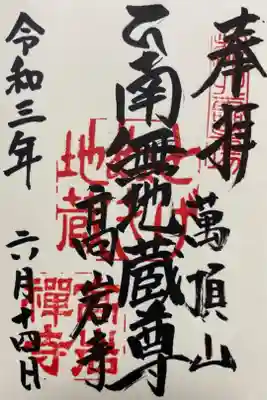 奉拝
萬頂山
南無地蔵尊
高岩寺
令和三年
六月十四日
地蔵
高岩
禪寺